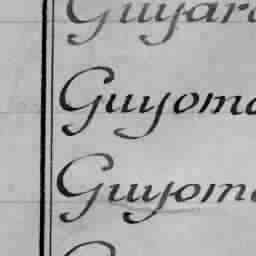 Guyar
Guyom
Guyom